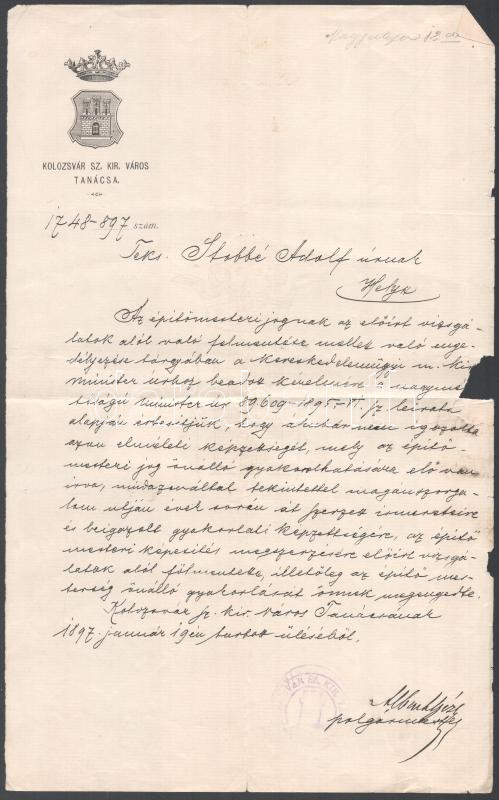 12 én
KOLOZSVÁR SZ. KIR. VÁROS
TANÁCSA.
1748-897 szám.
Teks. Stobbé Adolf úrnak
Helyt
Az építőmesteri jognak az előirt vizsgá-
latok alól való felmentése mellett való enge-
délyezése tárgyában a kereskedelemügyi m. kir.
minister úrhoz beadott kérelmére ő nagymél-
tóságú minister úr 89.609-1895-VI sz. leirata
alapján értesítjük, hogy ambár nem igazolta
azon elméleti képzettségét, mely az építő-
mesteri jog önálló gyakorolhatására elő van
irva, mindazonáltal tekintettel magánszorga-
lom utján évek során át szerzett ismereteire
és beigazolt gyakorlati képzettségére, az építő
mesteri képesítés megszerzésére előirt vizsgá-
latok alól fölmentetett, illetőleg az építő mes-
terség önálló gyakorlását önnek megengedte.
Kolozsvár sz. kir. város Tanácsának
1897. január 19én tartott üléséből.
VÁR SZ. KIR.
Albert
polgármester